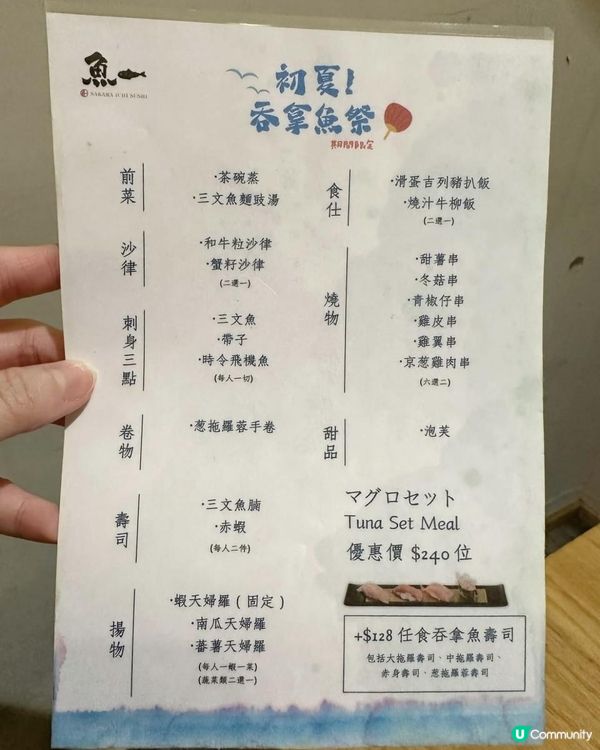 魚一
SAKANA ICHI SUSHI
初夏！
吞拿魚祭
期間限定
前菜
·茶碗蒸
·三文魚麵豉湯
沙律
·和牛粒沙律
·蟹籽沙律
(二選一)
刺身三點
·三文魚
·帶子
·時令飛機魚
(每人一切)
卷物
·葱拖羅蓉手卷
壽司
·三文魚腩
·赤蝦
(每人二件)
揚物
·蝦天婦羅(固定)
·南瓜天婦羅
·蕃薯天婦羅
(每人一蝦一菜)
(蔬菜類二選一)
食仕
·滑蛋吉列豬扒飯
·燒汁牛柳飯
(二選一)
燒物
·甜薯串
·冬菇串
·青椒仔串
·雞皮串
·雞翼串
·京葱雞肉串
(六選二)
甜品
·泡芙
マグロセット
Tuna Set Meal
優惠價 $240 位
+$128 任食吞拿魚壽司
包括大拖羅壽司、中拖羅壽司、
赤身壽司、葱拖羅蓉壽司
U Community